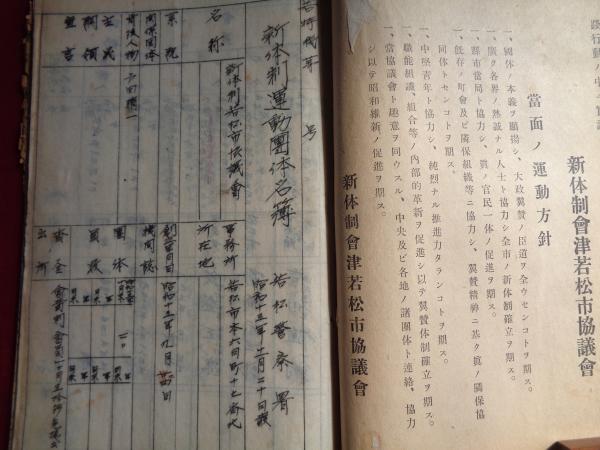 践行動ノ中
新体制會津若松市協議會
當面ノ運動方針
一、國体ノ本義ヲ顯揚シ、大政翼賛ノ臣道ヲ全ウセンコトヲ期ス。
一、廣ク各界ノ熱誠ナル人士ト協力シ全市ノ新体制確立ヲ期ス。
一、縣市當局ト協力シ、眞ノ官民一体ノ促進ヲ期ス。
一、既存ノ町會及ビ隣保組織等ニ協力シ、翼賛精神ニ基ク眞ノ隣保協
同体トセンコトヲ期ス。
一、中堅青年ト協力シ、純烈ナル推進力タランコトヲ期ス。
一、職能組織、組合等ノ内部的革新ヲ促進シ以テ翼賛体制確立ヲ期ス。
一、當協議會ト趣意ヲ同ウスル、中央及ビ各地ノ諸團体ト連絡、協力
シ以テ昭和維新ノ促進ヲ期ス。
新体制會津若松市協議會
号
新体制運動團体名簿
若松警察署
昭和十五年十二月二十日現
名称
新体制若松市協議會
事務所
所在地
若松市本六日町十七番地
系統
関係團体
創立年月日
昭和十五年九月
機関誌
主義
綱領
宣言
團体
員数
資金
出所